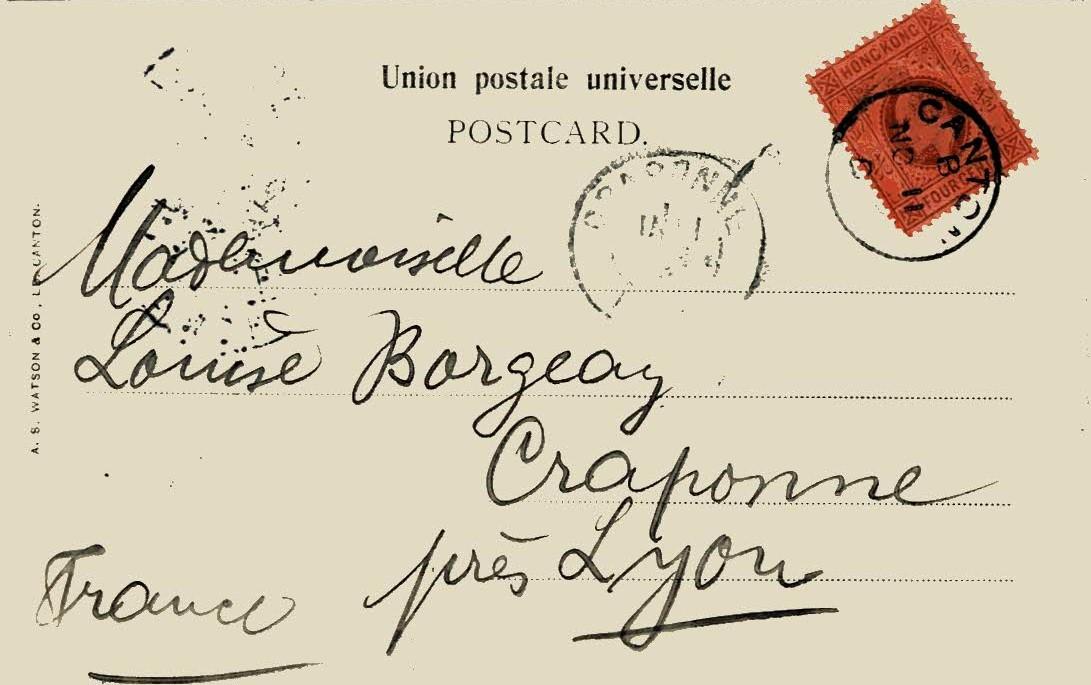 Union postale universelle
POSTCARD.
HONGKONG
FOUR
CANTON
B
NO 11
CRAPONNE
Mademoiselle
Louise Borgeay
Craponne
près Lyon
France
A. S. WATSON & Co., CANTON.